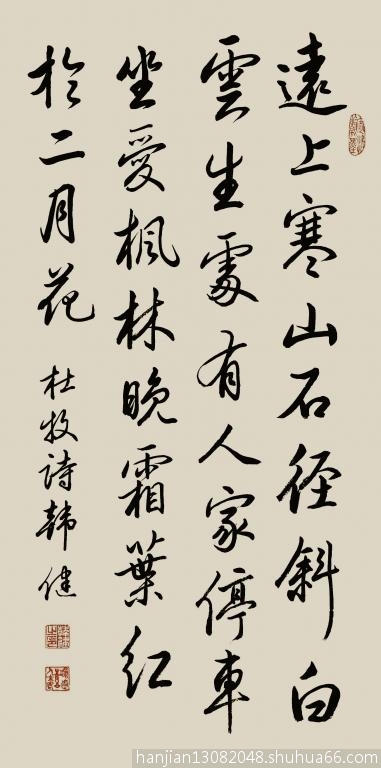 遠上寒山石径斜白
雲生處有人家停車
坐愛楓林晚霜葉红
於二月花
杜牧诗韩健
hanjian13082048.shuhua66.com